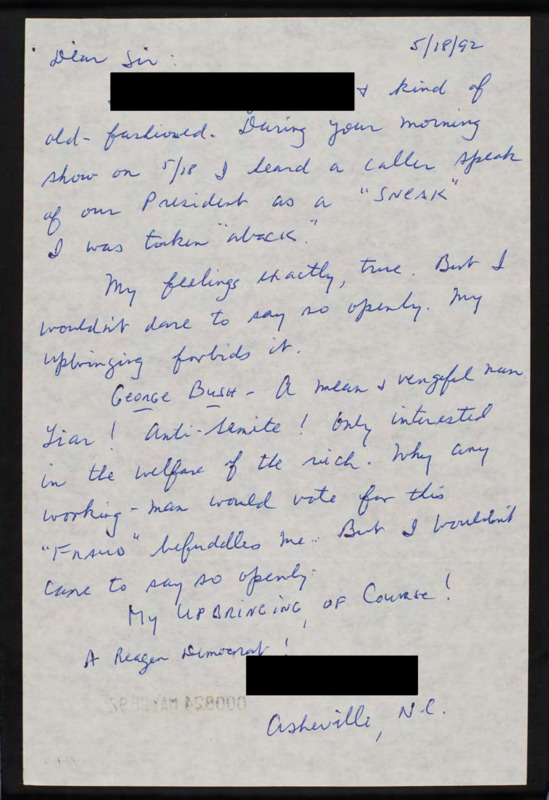 5/18/92
Dear Sir:
& kind of
old-fashioned. During your morning
show on 5/18 I heard a caller speak
of our President as a "SNEAK"
I was taken "aback."
My feelings exactly, true. But I
wouldn't dare to say so openly. My
upbringing forbids it.
George Bush - A mean & vengeful man.
Liar! Anti-Semite! Only interested
in the welfare of the rich. Why any
working-man would vote for this
"FRAUD" befuddles me. But I wouldn't
care to say so openly.
My UPBRINGING, OF COURSE!
A Reagan Democrat!
Asheville, N.C.